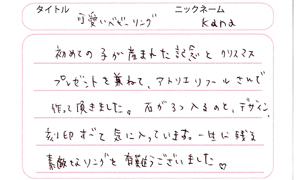 タイトル
ニックネーム
可愛いベビーリング
kana
初めての子が産まれた記念とクリスマス
プレゼントを兼ねて、アトリエリフールさんで
作って頂きました。石が3つ入るのと、デザイン、
刻印すべて気に入っています。一生に残る
素敵なリングを有難うございました♡